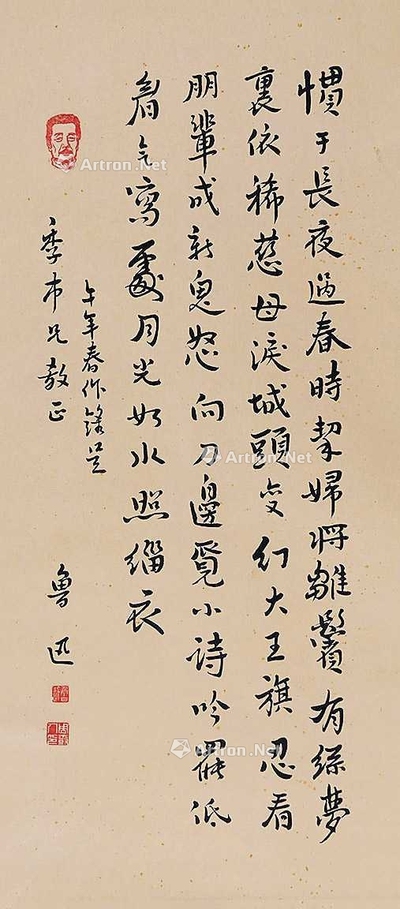 慣于長夜過春時挈婦將雛鬢有絲夢
裏依稀慈母淚城頭变幻大王旗忍看
朋輩成新鬼怒向刀邊覓小詩吟罷低
眉无寫處月光如水照緇衣
午年春作錄呈
季市兄教正
魯迅
Artron.Net
Artron.Net
Artron.Net